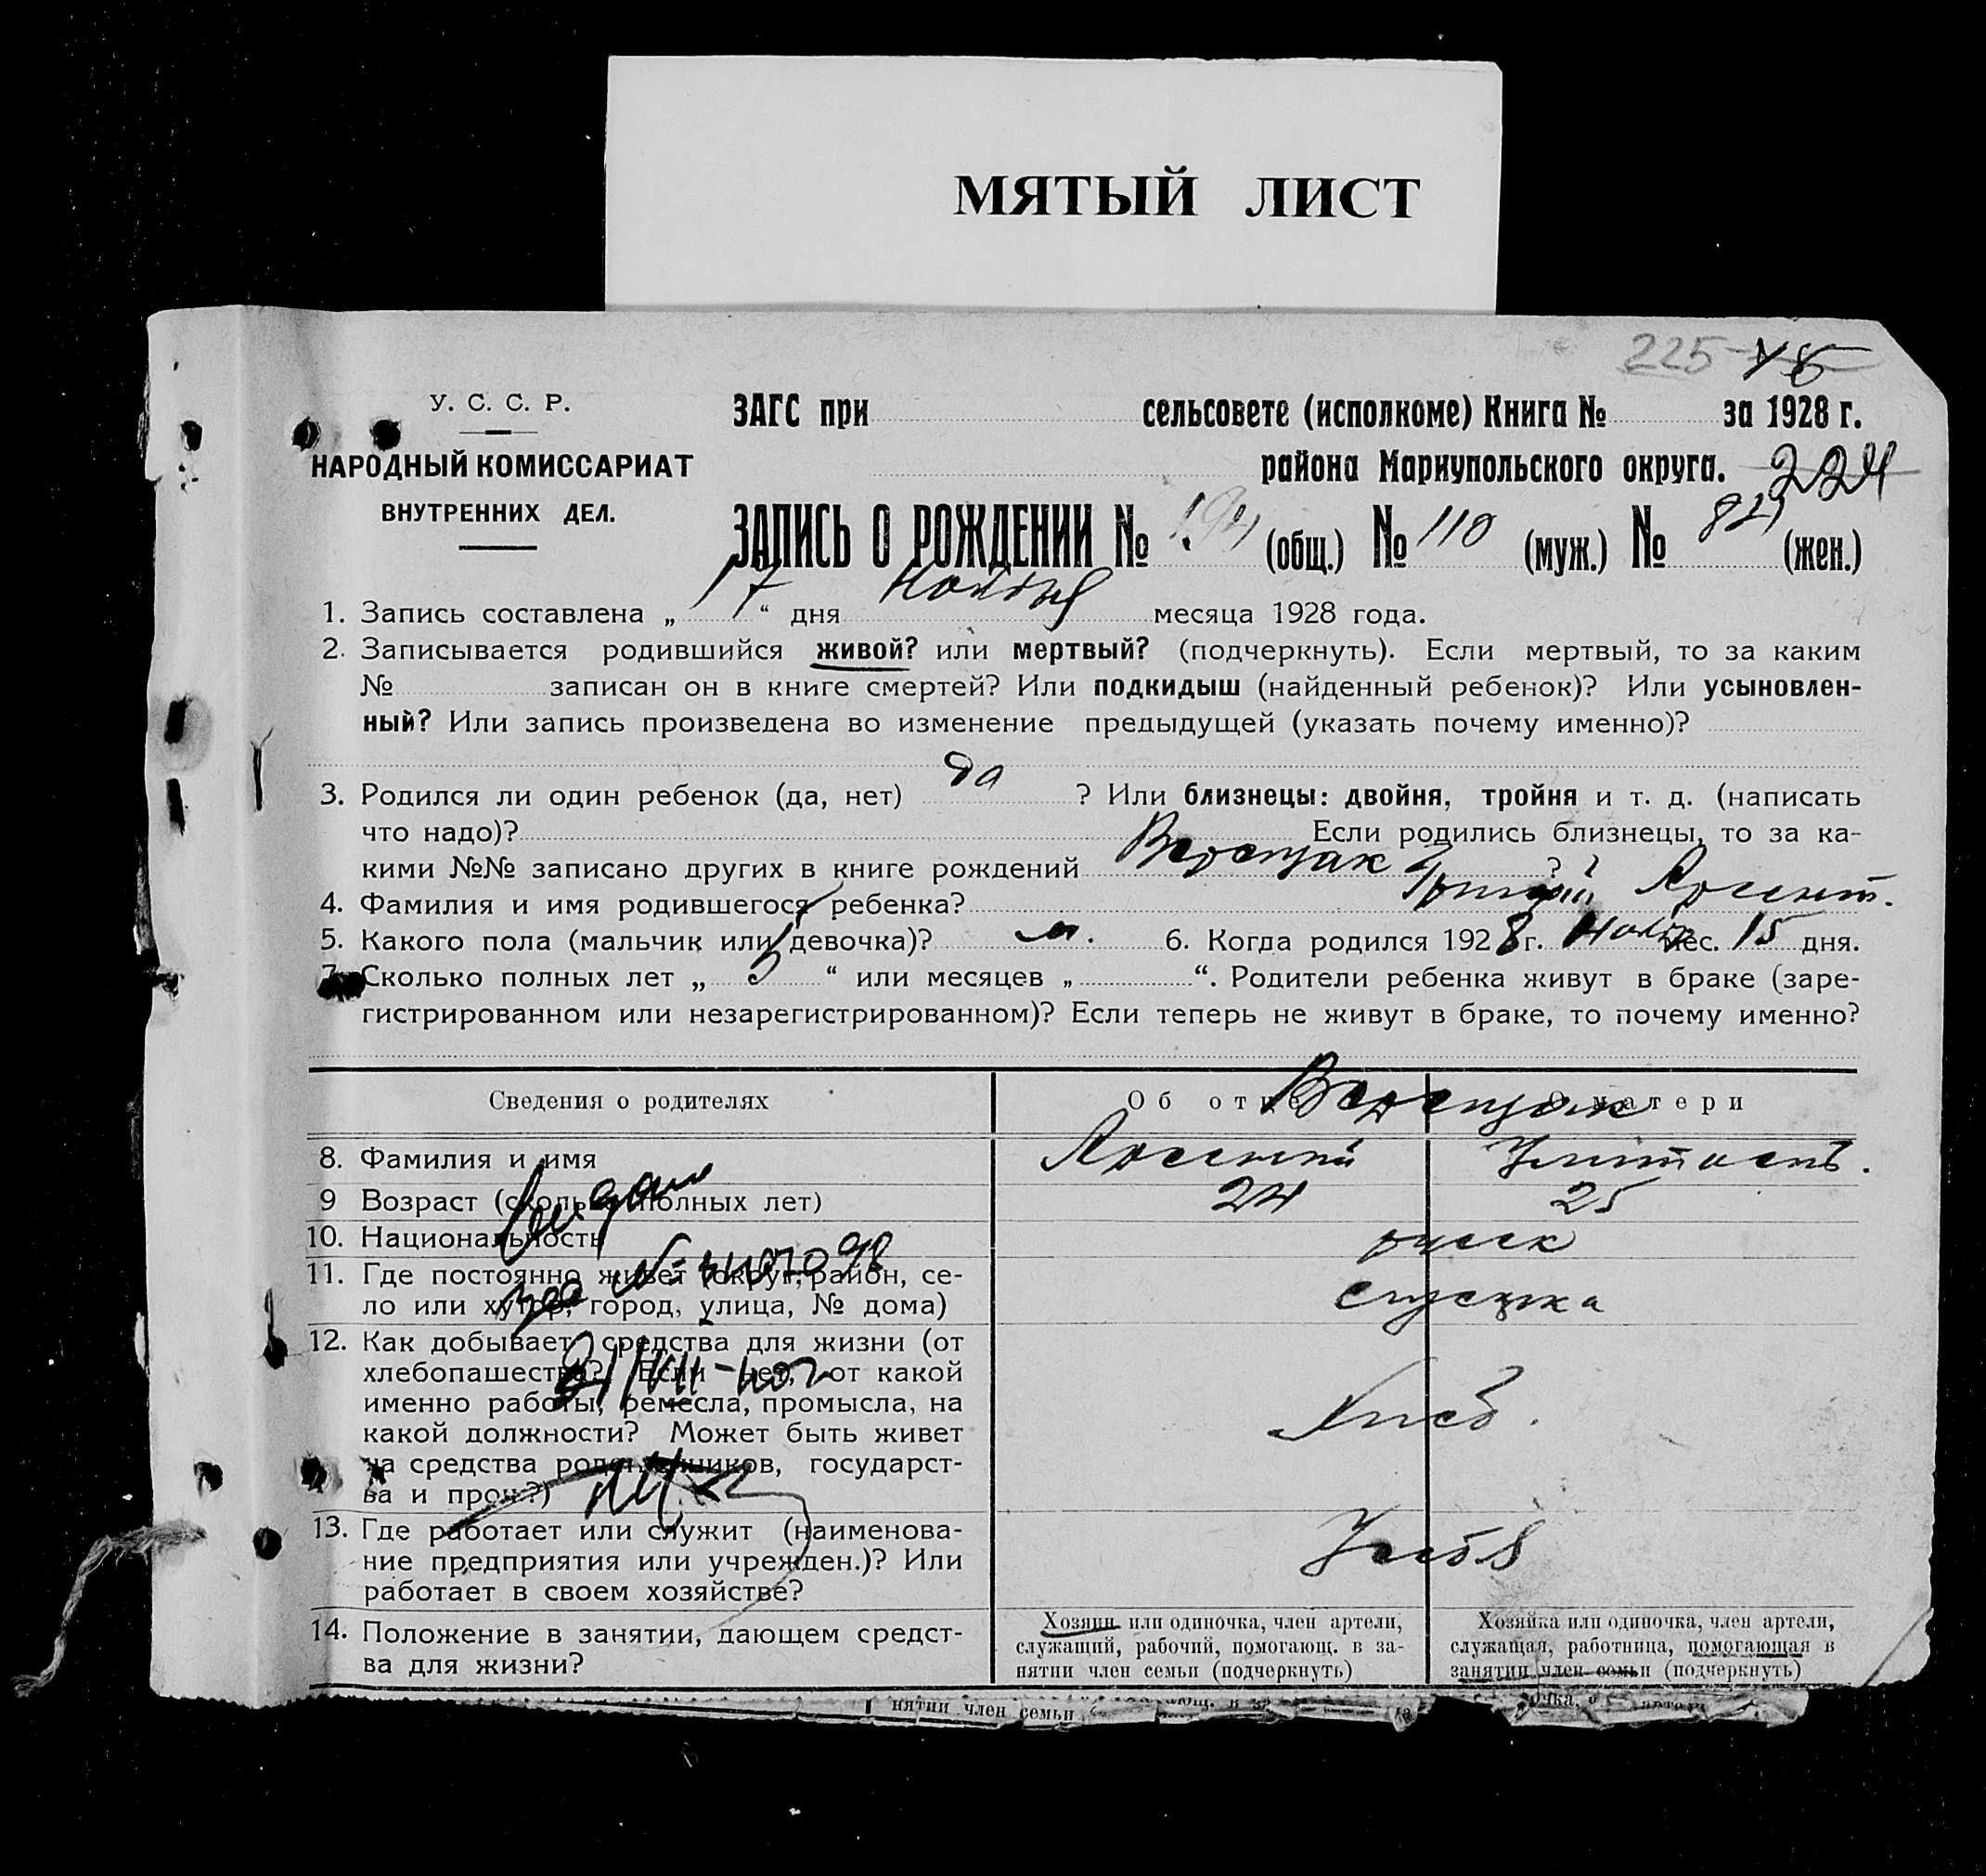 МЯТЫЙ ЛИСТ
225
У. С. С. Р.
НАРОДНЫЙ КОМИССАРИАТ
ВНУТРЕННИХ ДЕЛ.
ЗАГС при сельсовете (исполкоме) Книга № за 1928 г.
района Мариупольского округа. 224
ЗАПИСЬ О РОЖДЕНИИ № 194 (общ.) № 110 (муж.) № (жен.)
1. Запись составлена „ 17 “ дня ноября месяца 1928 года.
2. Записывается родившийся живой? или мертвый? (подчеркнуть). Если мертвый, то за каким
№ записан он в книге смертей? Или подкидыш (найденный ребенок)? Или усыновлен-
ный? Или запись произведена во изменение предыдущей (указать почему именно)?
3. Родился ли один ребенок (да, нет) да ? Или близнецы: двойня, тройня и т. д. (написать
что надо)? Если родились близнецы, то за ка-
кими №№ записано других в книге рождений ?
4. Фамилия и имя родившегося ребенка? Верещак
5. Какого пола (мальчик или девочка)? м. 6. Когда родился 1928 г. Нояб мес. 15 дня.
7. Сколько полных лет „ 5 “ или месяцев „ “. Родители ребенка живут в браке (заре-
гистрированном или незарегистрированном)? Если теперь не живут в браке, то почему именно?
Сведения о родителях Об отце О матери
Верещак
8. Фамилия и имя Арсений
9 Возраст (сколько полных лет) 24 25
10. Национальность русск
11. Где постоянно живет (округ, район, се-
ло или хутор, город, улица, № дома)
12. Как добывает средства для жизни (от
хлебопашества? Если нет, от какой
именно работы, ремесла, промысла, на
какой должности? Может быть живет
на средства родственников, государст-
ва и проч.?)
Хлеб.
13. Где работает или служит (наименова-
ние предприятия или учрежден.)? Или
работает в своем хозяйстве?
14. Положение в занятии, дающем средст-
ва для жизни?
Хозяин или одиночка, член артели,
служащий, рабочий, помогающ. в за-
нятии член семьи (подчеркнуть)
Хозяйка или одиночка, член артели,
служащая, работница, помогающая в
занятии член семьи (подчеркнуть)
нятии член семьи